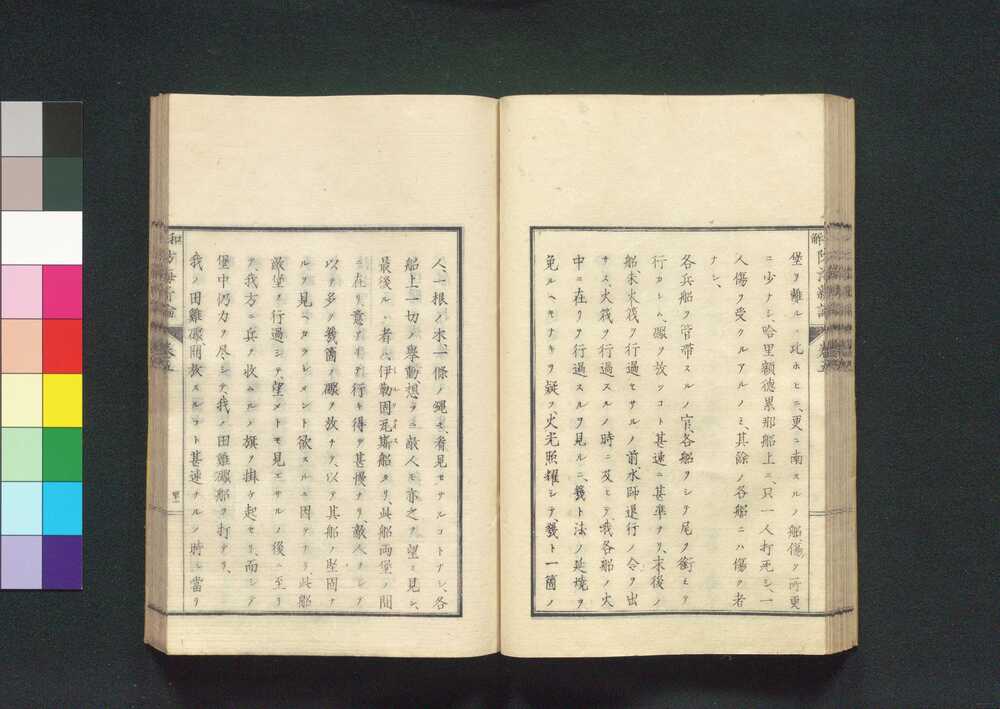 堡ヲ離ルヽ比ホヒニ、更ニ南スルノ船、傷ク所更
ニ少ナシ、哈里額德累那船上ニ、只一人打死シ、一
人傷ヲ受クルアルノミ、其餘ノ各船ニハ傷ク者
ナシ、
各兵船ヲ管帯スルノ官、各船ヲシテ尾ヲ銜ミテ
行カシム、礮ヲ放ツコト甚速ニ甚準ナリ、末後ノ
船未末筏ヲ行過セサルノ前、水師退行ノ令ヲ出
サス、火筏ヲ行過スルノ時ニ及ヒテ、我各船ノ火
中ニ在リテ行過スルヲ見ルニ、幾ト法ノ延境ヲ
免ルヘキナキヲ疑フ、火光照耀シテ、幾ト一箇ノ
人、一根ノ木、一條ノ繩モ、看見セサルコトナシ、各
船上一切ノ擧動、想フニ敵人モ亦之ヲ望ミ見シ、
最後ルヽ者ハ、伊勒固瓦斯船タリ、此船兩堡ノ間
ニ在リ、意ナキテ行キ得テ甚慢ナリ、敵人ヲシテ
以テ多ク幾箇ノ礮ヲ放チテ、以テ其船ノ堅固ナ
ルヲ見ベカラシメント欲スルニ因テナリ、此船
敵堡ヲ行過シテ、望メトモ見エサルノ後ニ至リ
テ、我方ニ兵ヲ收ムルノ旗ヲ掛ケ起セリ、而シテ
堡中仍力ヲ尽シテ、我ノ田雞礮船ヲ打テリ、
我ノ田雞礮開放スルコト甚速ナルノ時ニ當リ